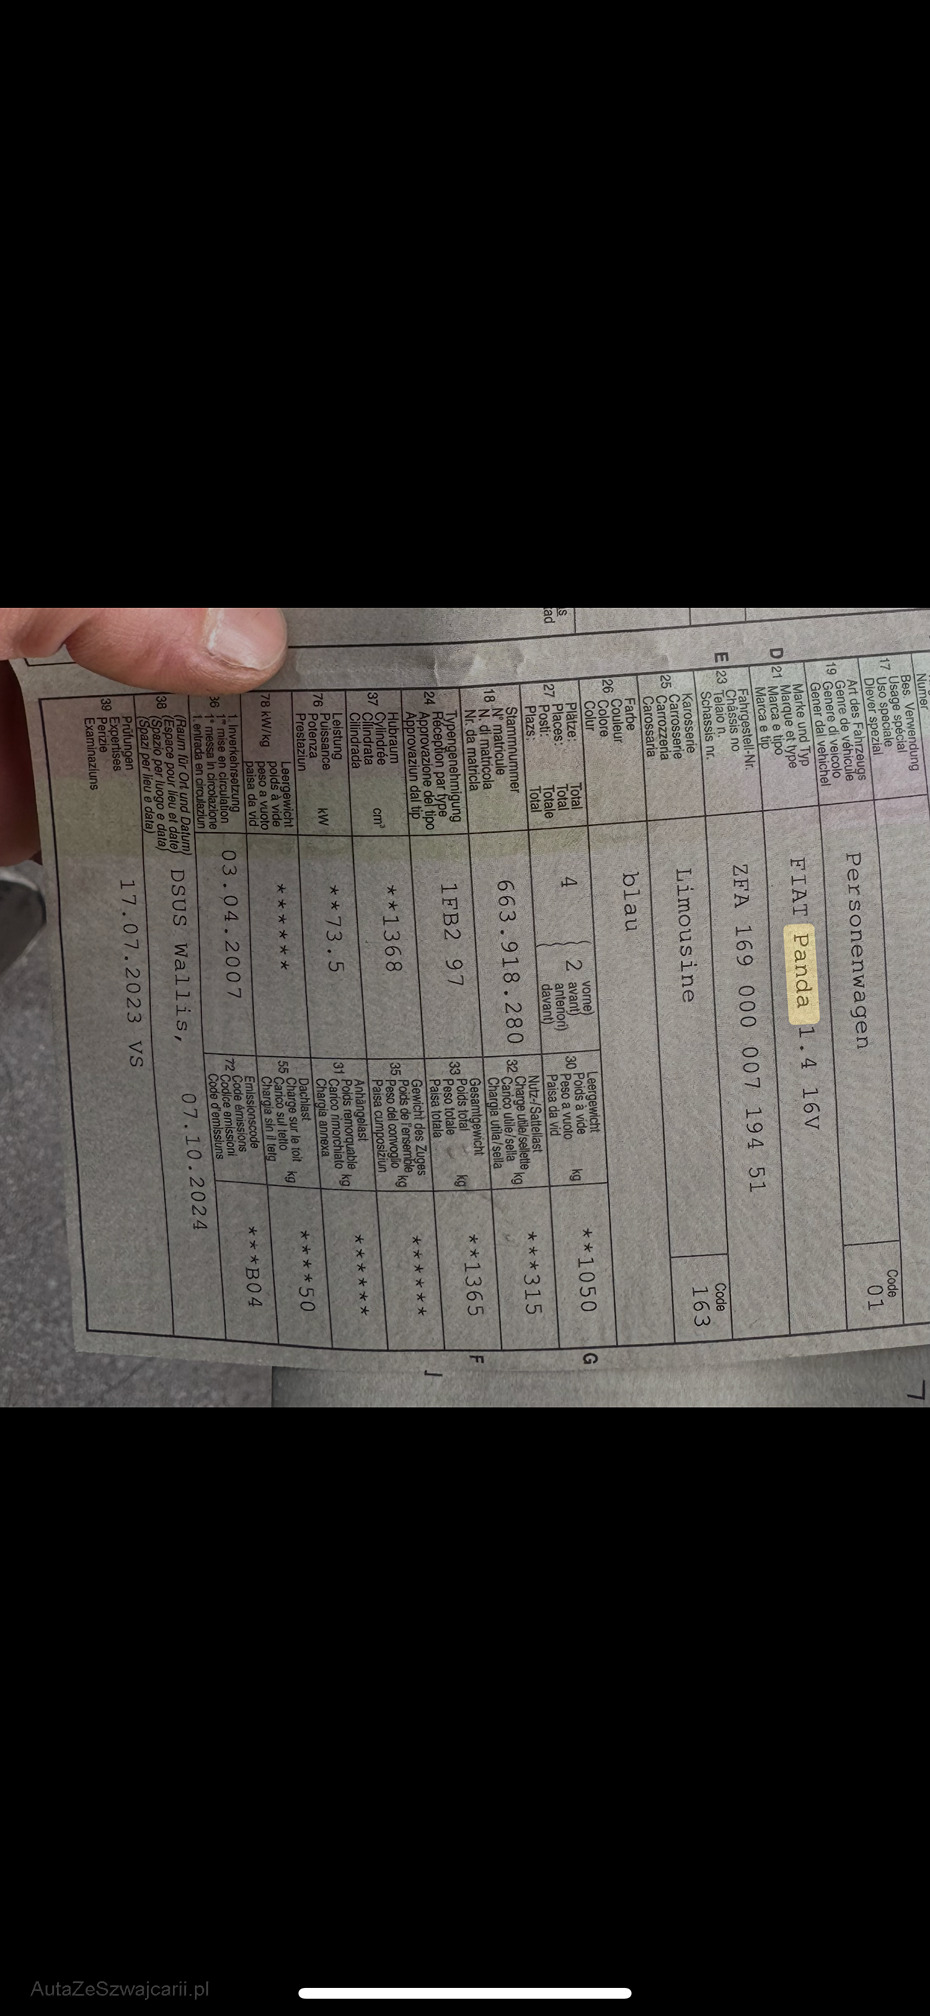 Nummer
Bes. Verwendung
17 Usage spécial
Uso speciale
Diever spezial
Art des Fahrzeugs
19 Genre de véhicule
Genere di veicolo
Gener dal vehichel
Personenwagen
Code
01
D 21 Marke und Typ
Marque et type
Marca e tipo
Marca e tip
FIAT Panda 1.4 16V
E 23 Fahrgestell-Nr.
Châssis no
Telaio n.
Schassis nr.
ZFA 169 000 007 194 51
25 Karosserie
Carrosserie
Carrozzeria
Carossaria
Limousine
Code
163
26 Farbe
Couleur
Colore
Colur
blau
27 Plätze: Total
Places: Total
Posti: Totale
Plazs: Total
4 2 vorne)
avant)
anteriori)
davant)
30 Leergewicht
Poids à vide
Peso a vuoto
Paisa da vid kg
**1050 G
18 Stammnummer
N° matricule
N. di matricola
Nr. da matricla
663.918.280
32 Nutz-/Sattellast
Charge utile/sellette kg
Carico utile/sella
Chargia utila/sella
***315
24 Typengenehmigung
Réception par type
Approvazione del tipo
Approvaziun dal tip
1FB2 97
33 Gesamtgewicht
Poids total
Peso totale
Paisa totala kg
**1365 F
37 Hubraum
Cylindrée
Cilindrata
Cilindrada cm³
**1368
35 Gewicht des Zuges
Poids de l'ensemble kg
Peso del convoglio
Paisa cumposiziun
******
J
76 Leistung
Puissance
Potenza
Prestaziun kW
**73.5
31 Anhängelast
Poids remorquable kg
Carico rimorchiato
Chargia annexa
******
78 kW/kg Leergewicht
poids à vide
peso a vuoto
paisa da vid
******
55 Dachlast
Charge sur le toit kg
Carico sul tetto
Chargia sin il tetg
****50
36 1. Inverkehrsetzung
1re mise en circulation
1a messa in circolazione
1. entrada en circulaziun
03.04.2007
72 Emissionscode
Code émissions
Codice emissioni
Code d'emissiuns
***B04
38 (Raum für Ort und Datum)
(Espace pour lieu et date)
(Spazio per luogo e data)
(Spazi per lieu e data)
DSUS Wallis, 07.10.2024
39 Prüfungen
Expertises
Perizie
Examinaziuns
17.07.2023 VS
AutaZeSzwajcarii.pl